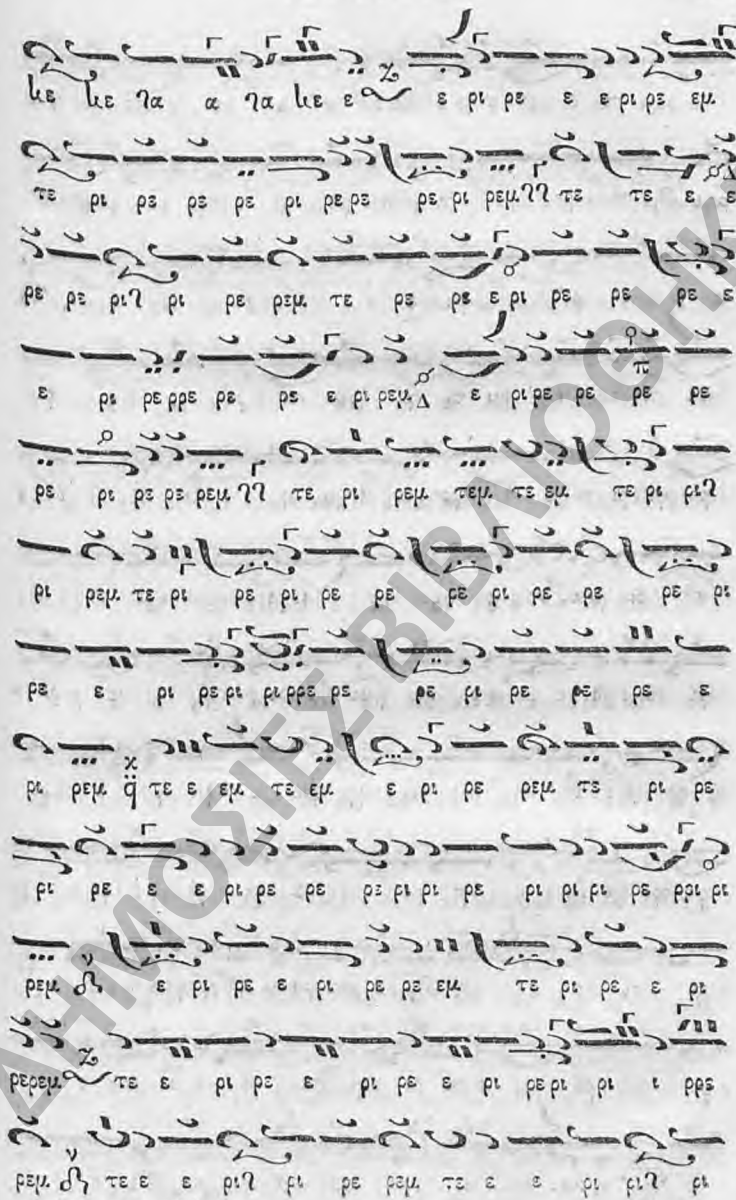 κε κε γα α γα κε ε ε ρι ρε ε ε ρι ρε εμ
τε ρι ρε ρε ρε ρι ρε ρε ρε ρι ρεμ γγ τε τε ε ε
ρε ρε ριγ ρι ρε ρεμ τε ρε ρε ε ρι ρε ρε ρε ε
ε ρι ρε ρρε ρε ρε ε ρι ρεμ Δ ε ρι ρε ρε ρε ρε
ρε ρι ρε ρε ρεμ γγ τε ρι ρεμ τεμ τε εμ τε ρι ριγ
ρι ρεμ τε ρι ρε ρι ρε ρε ρε ρι ρε ρε ρε ρι
ρε ε ρι ρε ρι ρι ρρε ρε ρε ρι ρε ρε ρε ε
ρι ρεμ q τε ε εμ τε εμ ε ρι ρε ρεμ τε ρι ρε
ρι ρε ε ε ρι ρε ρε ρι ρι ρι ρε ρι ρι ρι ρε ρρι ρι
ρεμ ε ρι ρε ε ρι ρε ρε εμ τε ρι ρε ε ρι
ρερεμ τε ε ρι ρε ε ρι ρε ε ρι ρε ρι ρι ι ρρε
ρεμ τε ε ε ριγ ρι ρε ρεμ τε ε ε ρι ριγ ρι
ΔΗΜΟΣΙΕΣ ΒΙΒΛΙΟΘΗΚ